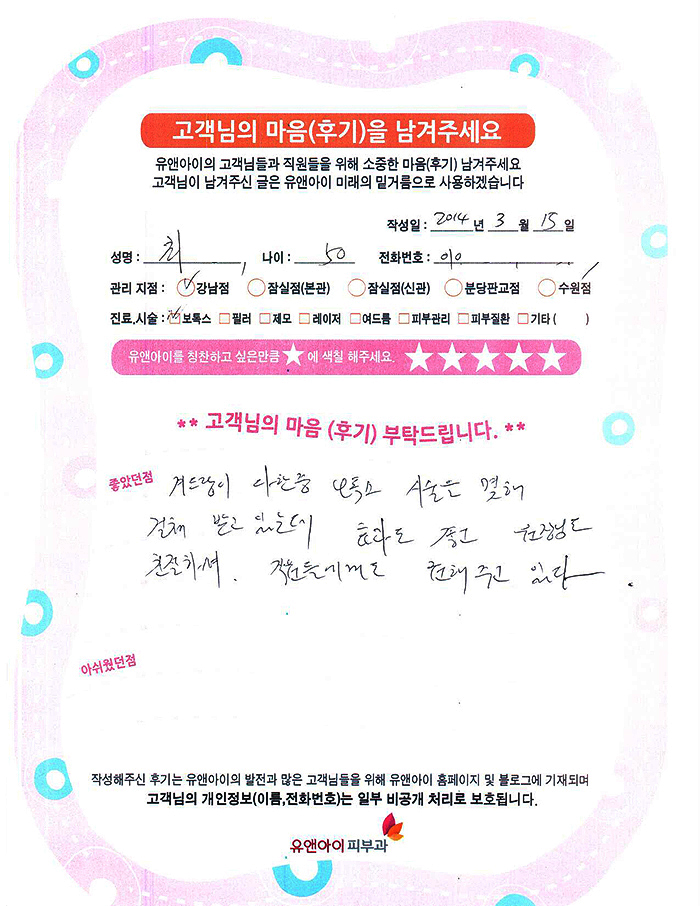 고객님의 마음(후기)을 남겨주세요
유앤아이의 고객님들과 직원들을 위해 소중한 마음(후기) 남겨주세요
고객님이 남겨주신 글은 유앤아이 미래의 밑거름으로 사용하겠습니다
작성일 : 2014 년 3 월 15 일
성명 : 최 나이 : 50 전화번호 : 010
관리 지점 : 강남점 잠실점(본관) 잠실점(신관) 분당판교점 수원점
진료,시술 : 보톡스 필러 제모 레이저 여드름 피부관리 피부질환 기타 ( )
유앤아이를 칭찬하고 싶은만큼 ★ 에 색칠 해주세요. ★★★★★
** 고객님의 마음 (후기) 부탁드립니다. **
좋았던점
겨드랑이 다한증 보톡스 시술을 몇해
걸쳐 받고 있는데 효과도 좋고 원장님도
친절하셔. 직원들에게도 권해주고 있다
아쉬웠던점
작성해주신 후기는 유앤아이의 발전과 많은 고객님들을 위해 유앤아이 홈페이지 및 블로그에 기재되며
고객님의 개인정보(이름,전화번호)는 일부 비공개 처리로 보호됩니다.
유앤아이피부과